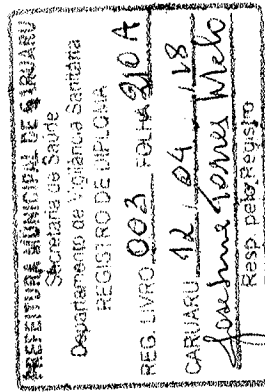 PREFEITURA MUNICIPAL DE CARUARU
Secretaria de Saúde
Departamento de Vigilância Sanitária
REGISTRO DE DIPLOMA
REG. LIVRO 003 FOLHA 210A
CARUARU 12 / 04 / 18
Josesme Torres Melo
Resp. pelo Registro